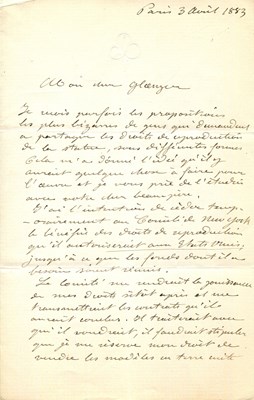 Paris 3 Avril 1883
Mon cher Glaenzer
Je reçois parfois les propositions
les plus bizarres de gens qui demandent
à partager les droits de reproduction
de la statue, sous différentes formes
Cela m'a donné l'idée qu'il y
aurait quelque chose à faire pour
l'œuvre et je vous prie de l'étudier
avec votre cher beau-père.
J'ai l'intention de céder temp-
orairement au Comité de New York
le bénéfice des droits de reproduction
qu'il autoriserait aux Etats Unis,
jusqu'à ce que les fonds dont il a
besoin soient réunis.
Le Comité me rendrait la jouissance
de mes droits sitôt après et me
transmettrait les contrats qu'il
aurait conclus. Il traiterait avec
qui il voudrait, il faudrait stipuler
que je me réserve mon droit de
vendre les modèles en terre cuite